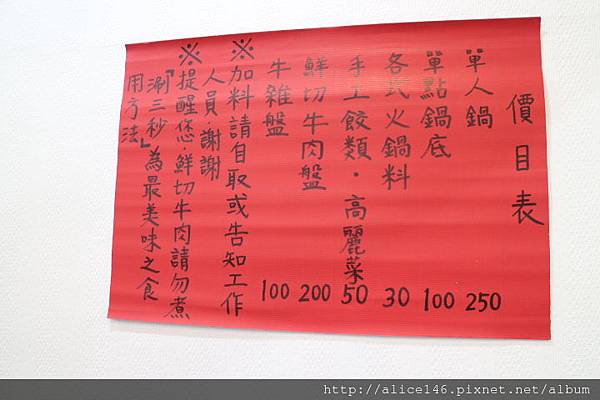 價目表
單人鍋 250
單點鍋底 100
各式火鍋料 30
手工餃類·高麗菜 50
鮮切牛肉盤 200
牛雜盤 100
※加料請自取或告知工作
人員謝謝
※提醒您·鮮切牛肉請勿煮
『涮三秒』為最美味之食
用方法
http://alice146.pixnet.net/album